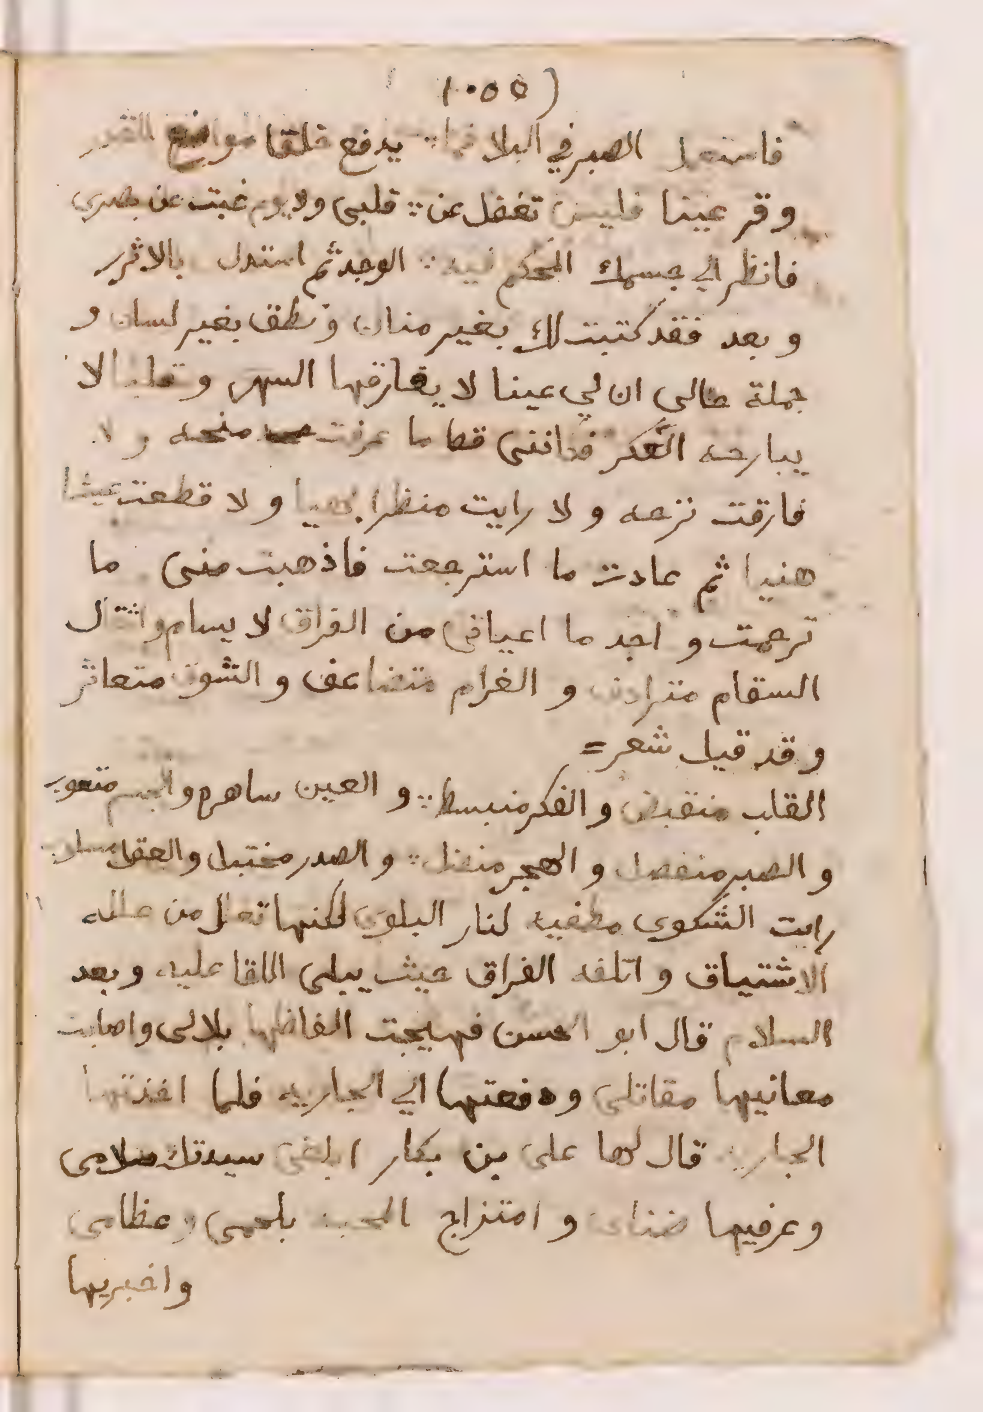 (١٠٥٥)
فاستعمل الصبر في البلا فما ∴ يدفع خلقا مواضع القدر
وقر عينا فليس تغفل عن ∴ قلبى ولا يوم غبت عن بصري
فانظر الي جسمك المحكم فيه ∴ الوجد ثم استدل بالاثر
وبعد فقد كتبت لك بغير منان ونطق بغير لسان و
جملة حالى ان لي عينا لا يفارقها السهر وقلبا لا
يبارحه الفكر فكاننى قط ما عرفت منحه ولا
فارقت نزهه ولا رايت منظرا بهيا ولا قطعت عيشا
هنيا ثم عادت ما استرجعت فاذهبت منى ما
ترحمت و اجد ما اعيافى من الفراق لا يسام واثقال
السقام مترادف و الغرام متضاعف و الشوق متعاثر
وقد قيل شعر =
القلب منقبض و الفكر منبسط ∴ و العين ساهره والجسم متعوب
و الصبر منفصل و الهجر متصل ∴ و الصدر مختبل والعقل مسلوب
رايت الشكوى مطفيه لنار البلوى لكنها تعلل من علله
الاشتياق و اتلفه الفراق حيث يبلى اللقا عليه وبعد
السلام قال ابو الحسن فهيجت الفاظها بلالى واصابت
معانيها مقاتلى ودفعتها الي الجاريه فلما اخذتها
الجاريه قال لها على بن بكار ابلغى سيدتك سلامى
وعرفيها ضناى و امتزاج المحبه بلحمى وعظامى
واخبريها